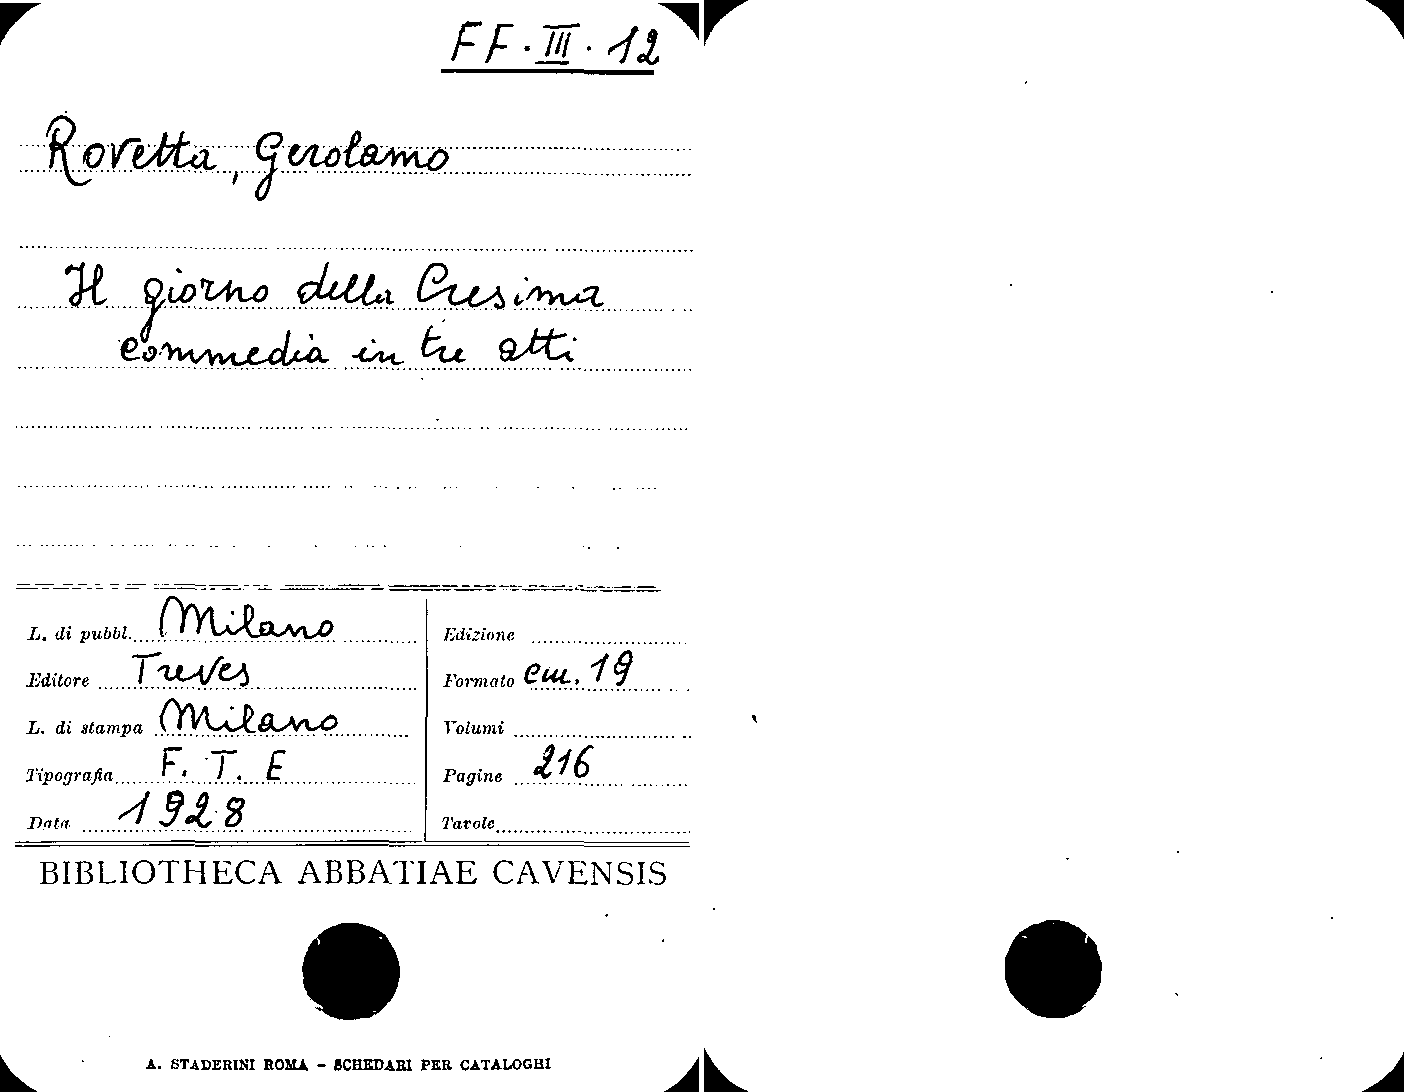 FF. III. 12
Rovetta, Gerolamo
Il giorno della Cresima
commedia in tre atti
L. di pubbl. Milano
Editore Treves
L. di stampa Milano
Tipografia F. T. E
Data 1928
Edizione
Formato cm. 19
Volumi
Pagine 216
Tavole
BIBLIOTHECA ABBATIAE CAVENSIS
A. STADERINI ROMA - SCHEDARI PER CATALOGHI